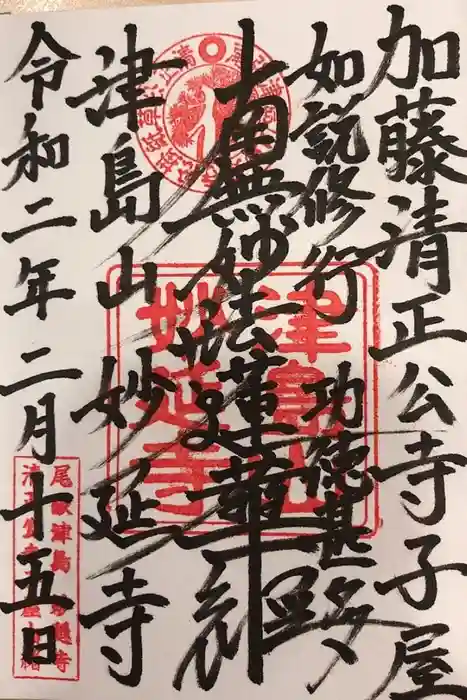 加藤清正公寺子屋
如説修行 功徳甚多
南無妙法蓮華経
津島山 妙延寺
令和二年二月十五日
津島山
妙延寺